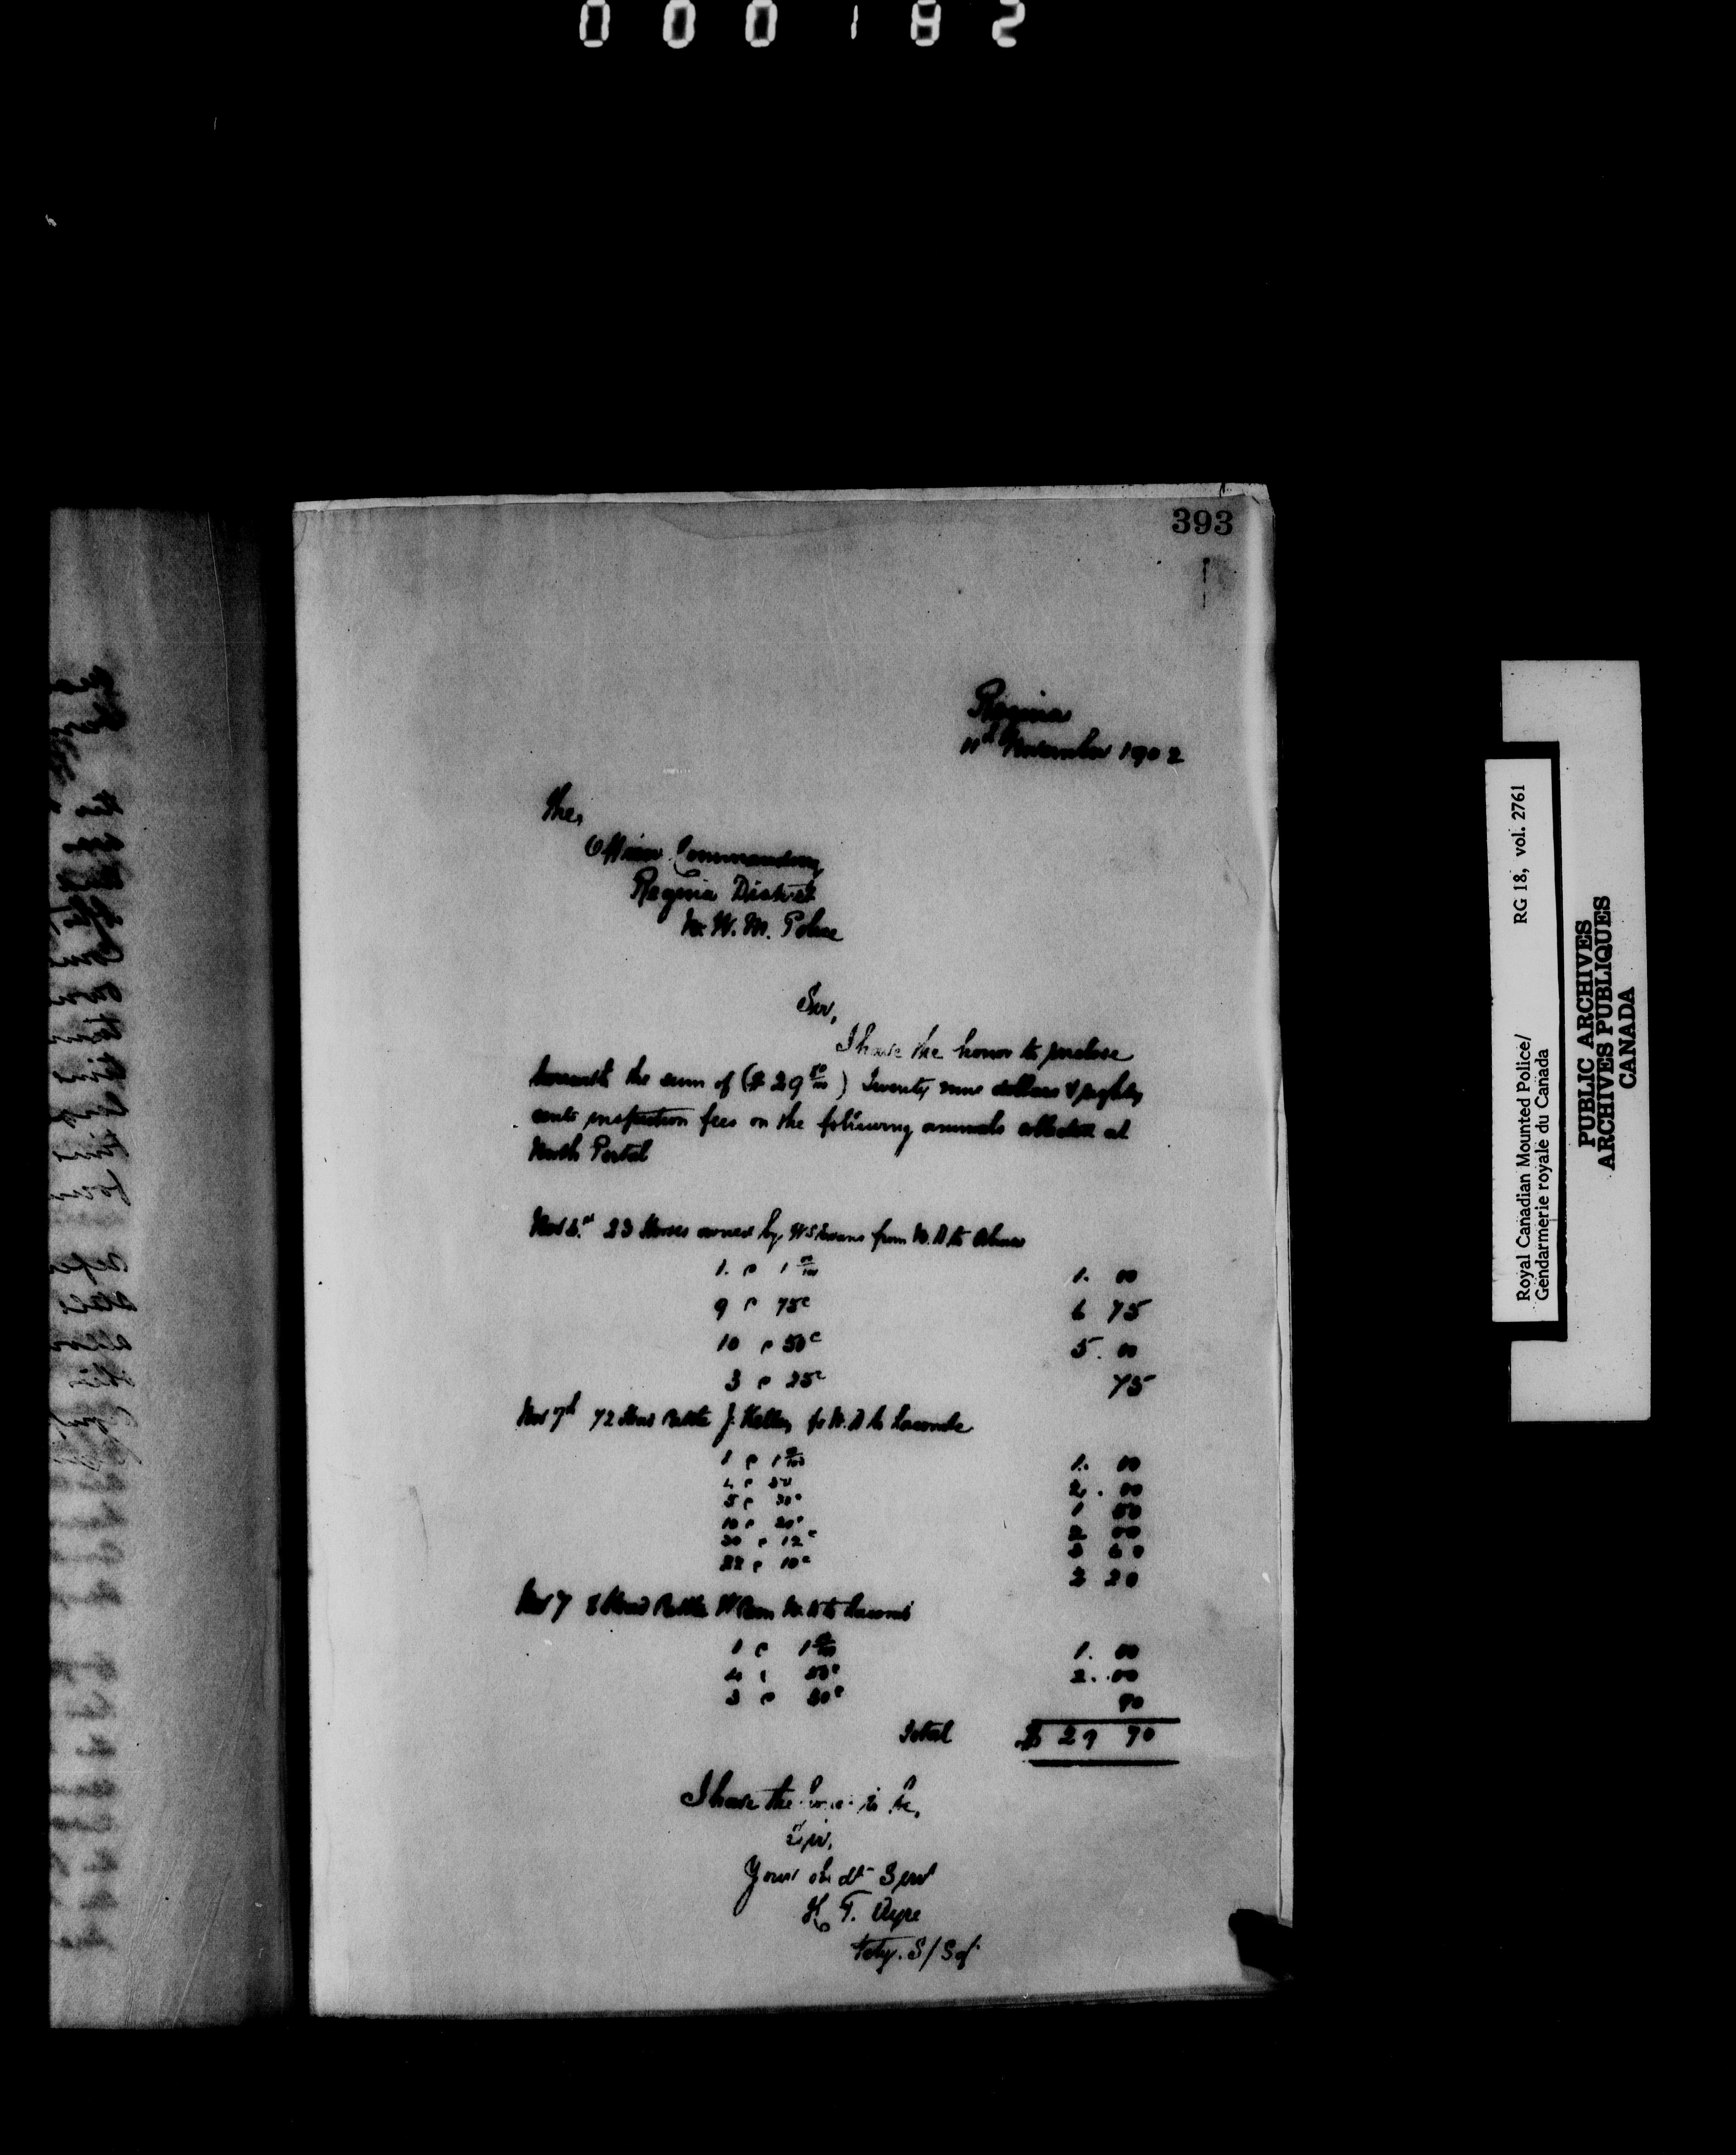 000182
393
Regina
11th November 1902
The,
Officer Commanding
Regina District
N. W. M. Police
Sir,
I have the honor to enclose
herewith the sum of ($ 29 80/100) Twenty nine dollars & eighty
cents inspection fees on the following animals collected at
North Portal
Nov 23 Horses owned by W S Evans from N. D to
1. @ 1 00/100 1. 00
9 @ 75c 6 75
10 @ 50c 5. 00
3 @ 25c 75
Nov 7th 72 Head Cattle J. Kelley fr N. D to Lacombe
1 @ 1 00/100 1. 00
4 @ 50 2. 00
5 @ 30c 1 50
10 @ 20c 2 00
30 @ 12c 3 60
22 @ 10c 2 20
Nov 7 8 Head Cattle W N. D to Lacombe
1 @ 1 00/100 1. 00
4 @ 50c 2. 00
3 @ 30c 90
Total $ 29 70
I have the honor to be,
Sir,
Your obdt Servt
H. T. Ayre
Vety. S/Sgt
Royal Canadian Mounted Police/ RG 18, vol. 2761
Gendarmerie royale du Canada
PUBLIC ARCHIVES
ARCHIVES PUBLIQUES
CANADA